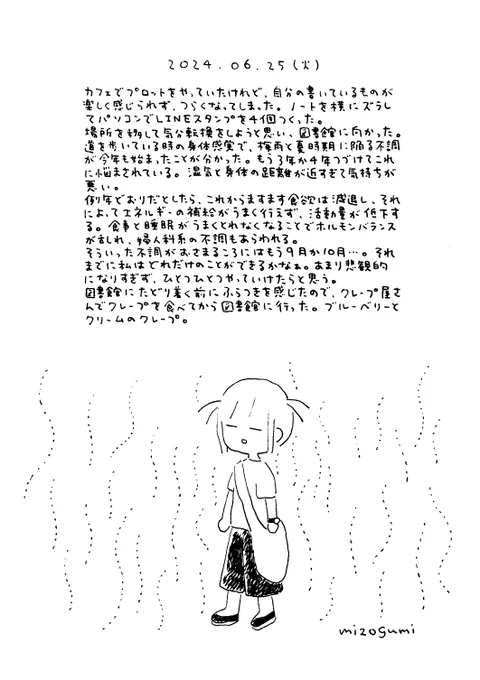 2024.06.25(火)
カフェでプロットをやっていたけれど、自分の書いているものが
楽しく感じられず、つらくなってしまった。ノートを横にズラし
てパソコンでLINEスタンプを4個つくった。
場所を移して気分転換をしようと思い、図書館に向かった。
道を歩いている時の身体感覚で、梅雨と夏時期に陥る不調
が今年も始まったことが分かった。もう3年か4年つづけてこれ
に悩まされている。湿気と身体の距離が近すぎて気持ちが
悪い。
例年どおりだとしたら、これからますます食欲は減退し、それ
によってエネルギーの補給がうまく行えず、活動量が低下す
る。食事と睡眠がうまくとれなくなることでホルモンバランス
が乱れ、婦人科系の不調もあらわれる。
そういった不調がおさまるころにはもう9月か10月…。それ
までに私はどれだけのことができるかなぁ。あまり悲観的
になりすぎず、ひとつひとつやっていけたらと思う。
図書館にたどり着く前にふらつきを感じたので、クレープ屋さ
んでクレープを食べてから図書館に行った。ブルーベリーと
クリームのクレープ。
mizogumi